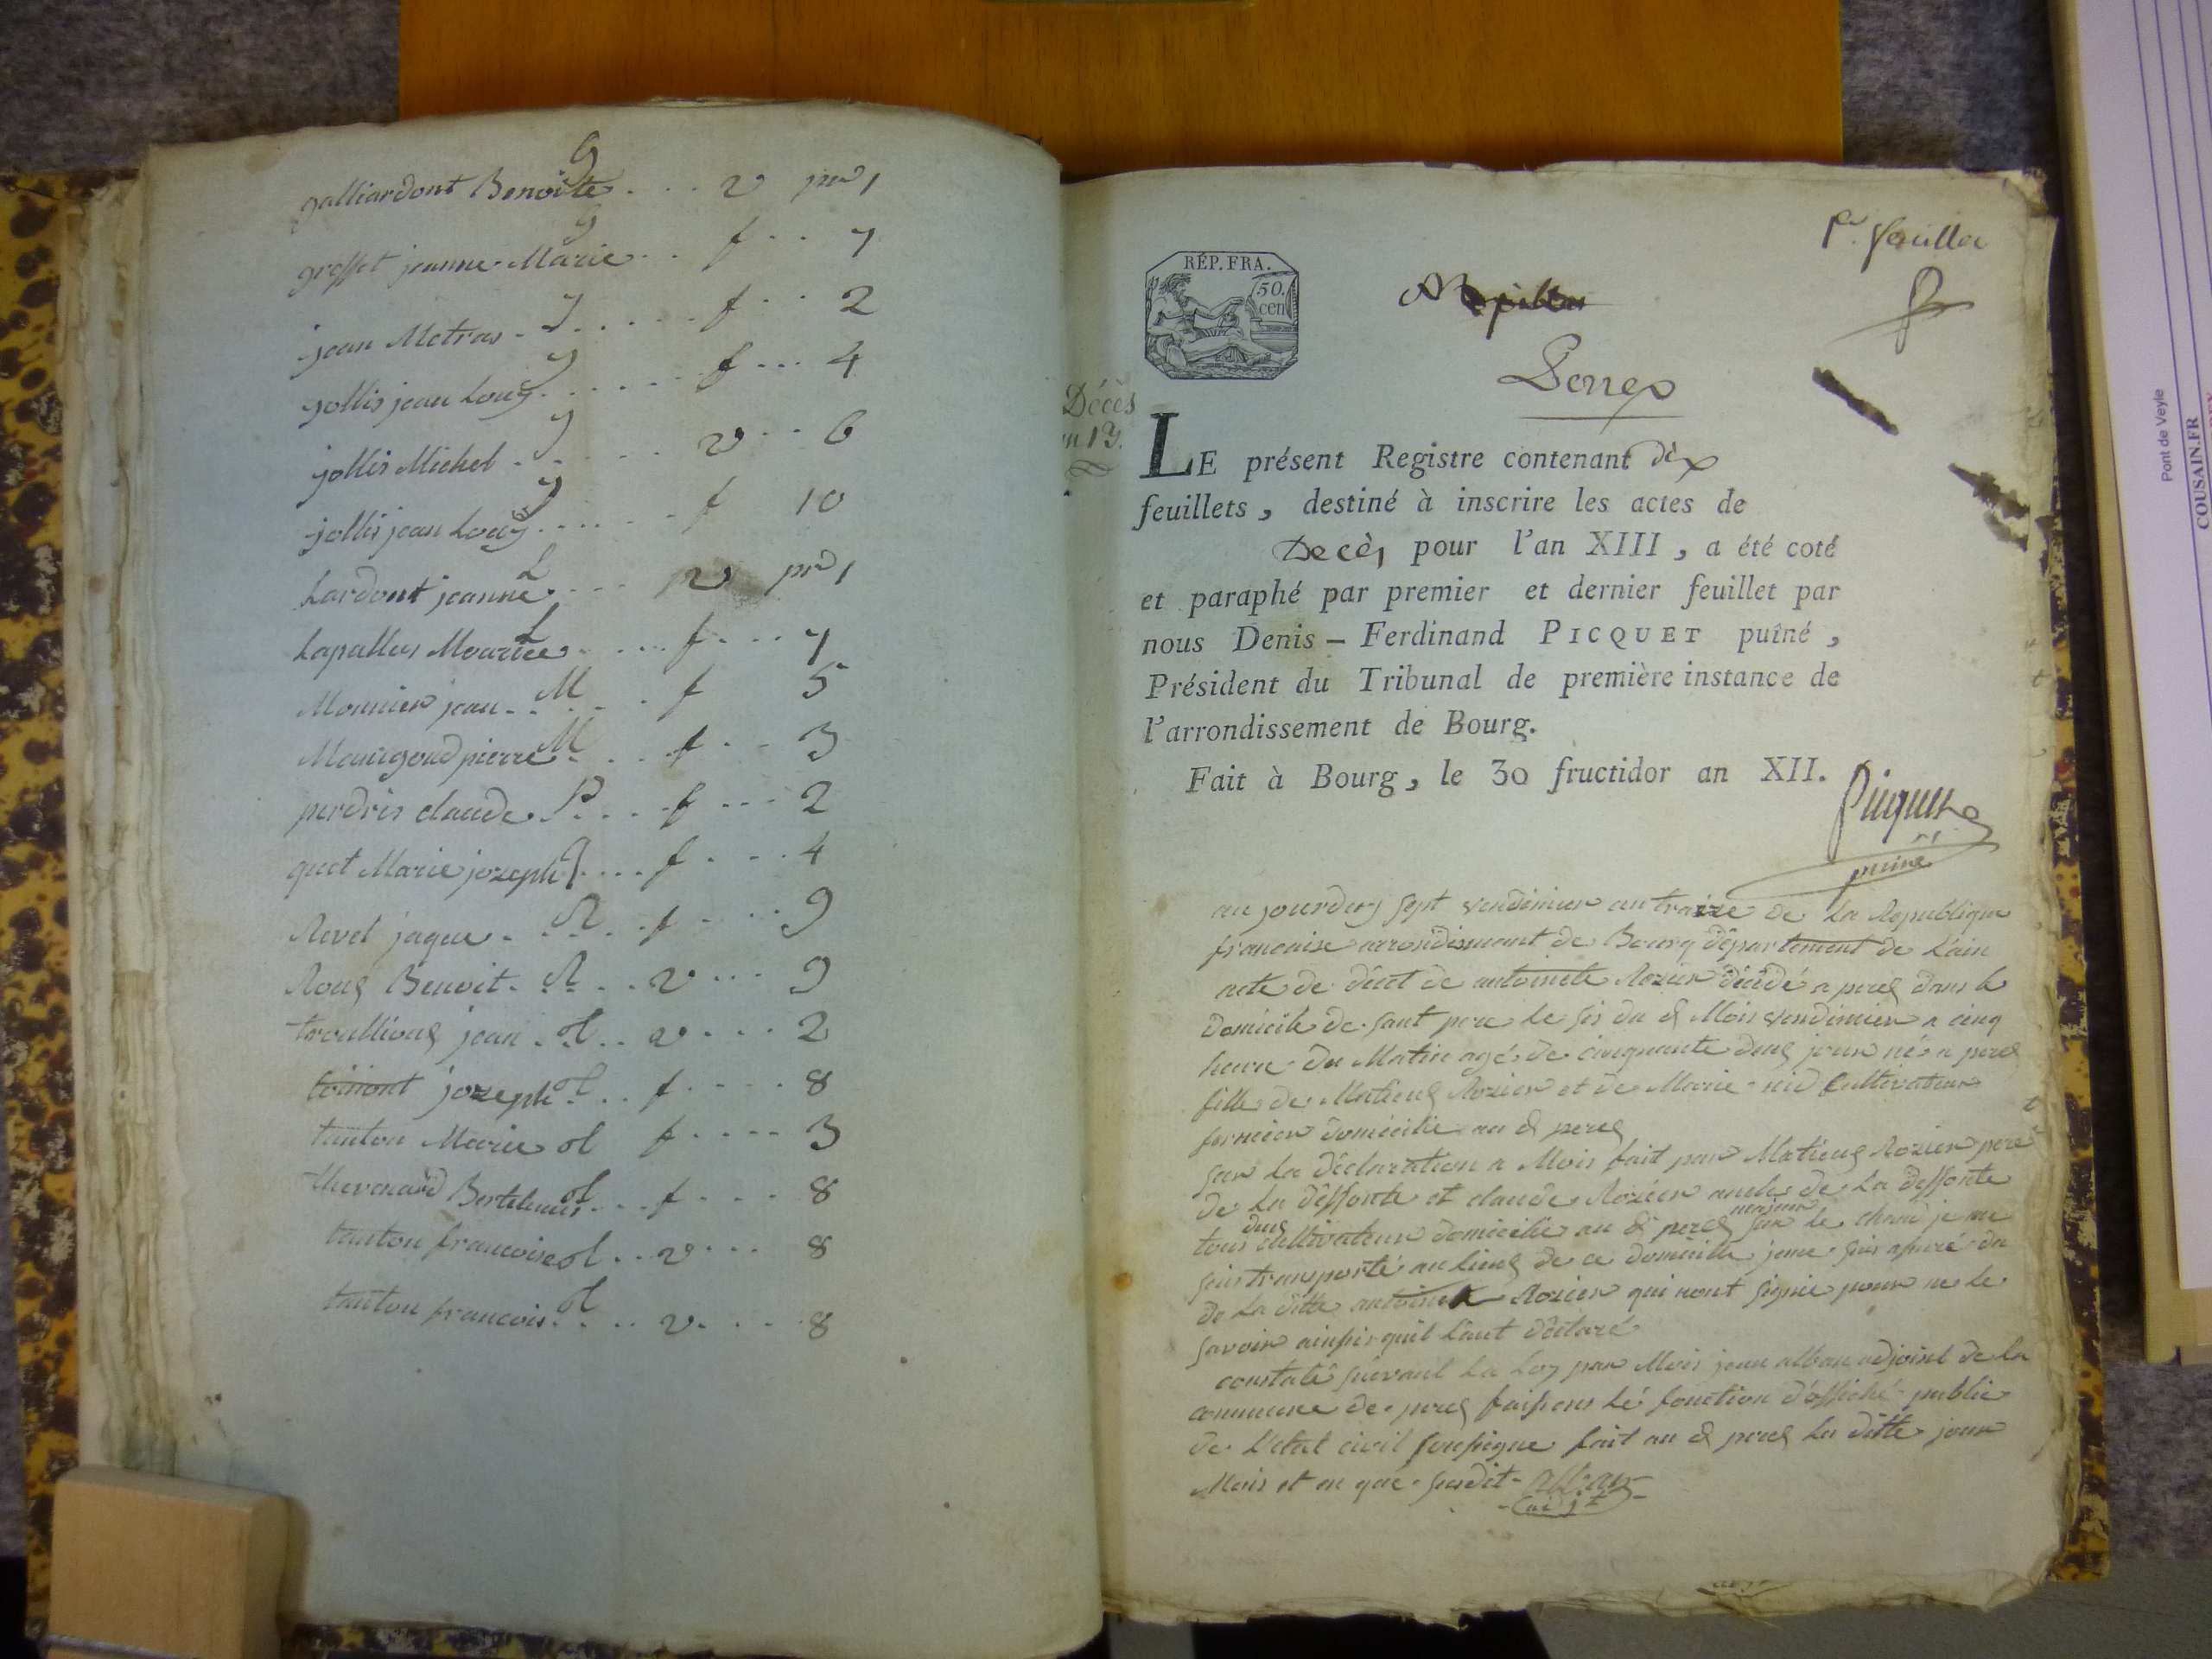 galliardont Benoite . . . v pr 1
g
groffet jeanne Marie . . f . . 7
g
jean Metras . J . . . . . f . . 2
jollis jean Louis . . . . . f . . . 4
jollis Michel . . . . . . v . . 6
jollis jean Louis . . . . . . f 10
Lardont jeanne L . . . v pr 1
Lapallus Mourice L . . . . f . . . . 7
Monnier jean . M . . . f 5
Mongoud pierre M . . . f . . . 3
perdrix claude . P . . . f . . . 2
quet Marie jozeph q . . . . f . . . . 4
Revel jaque . R . . f . . . . 9
Roux Benoit . R . . v . . . 9
troullioux jean . t . . v . . . . 2
toinont jozeph t . . f . . . . 8
tanton Marie t f . . . . 3
thevenard Bertelmier t . . . f . . . . 8
tanton francoise t . . v . . . 8
tanton francois t . . . . v . . . . 8
pr. feuillet
RÉP. FRA.
50.
cen
Perrex
Décès
an 13.
LE présent Registre contenant dix
feuillets, destiné à inscrire les actes de
Decès pour l'an XIII, a été coté
et paraphé par premier et dernier feuillet par
nous Denis – Ferdinand PICQUET puîné,
Président du Tribunal de première instance de
l'arrondissement de Bourg.
Fait à Bourg, le 30 fructidor an XII.
Picquet
puiné
au jourduy sept vendimier an traize de La Republique
francaise arrondismant de Bourg département de L'ain
acte de décet de antoinete Rozier décédé a perex dans le
domicile de sont pere le sis du d Mois vendimier a cinq
heure du Matin agé de cinquante deux jour né a perex
fille de Matieux Rozier et de Marie nid Cultivateur
fermier domicilie au d perex
sur La déclaration a Mois fait par Matieux Rozier pere
de La deffonte et claude Rozier oncle de La deffonte
tous deux cultivateur domicilie au d perex majeur sur le chand je me
suis transporté au lieux de ce domicille jeme suis assuré du
de La ditte antoinete Rozier qui nont signie pour ne le
savoir ainssis quil L'ant déclaré
constaté suivant La Loy par Mois jean alban adjoint de La
commune de perex faissens lé fonction d'officié public
de L'etat civil soussigne fait au d perex Les ditte jour
Mois et en que susdit - alban
adjt
Pont de Veyle
COUSAIN.FR